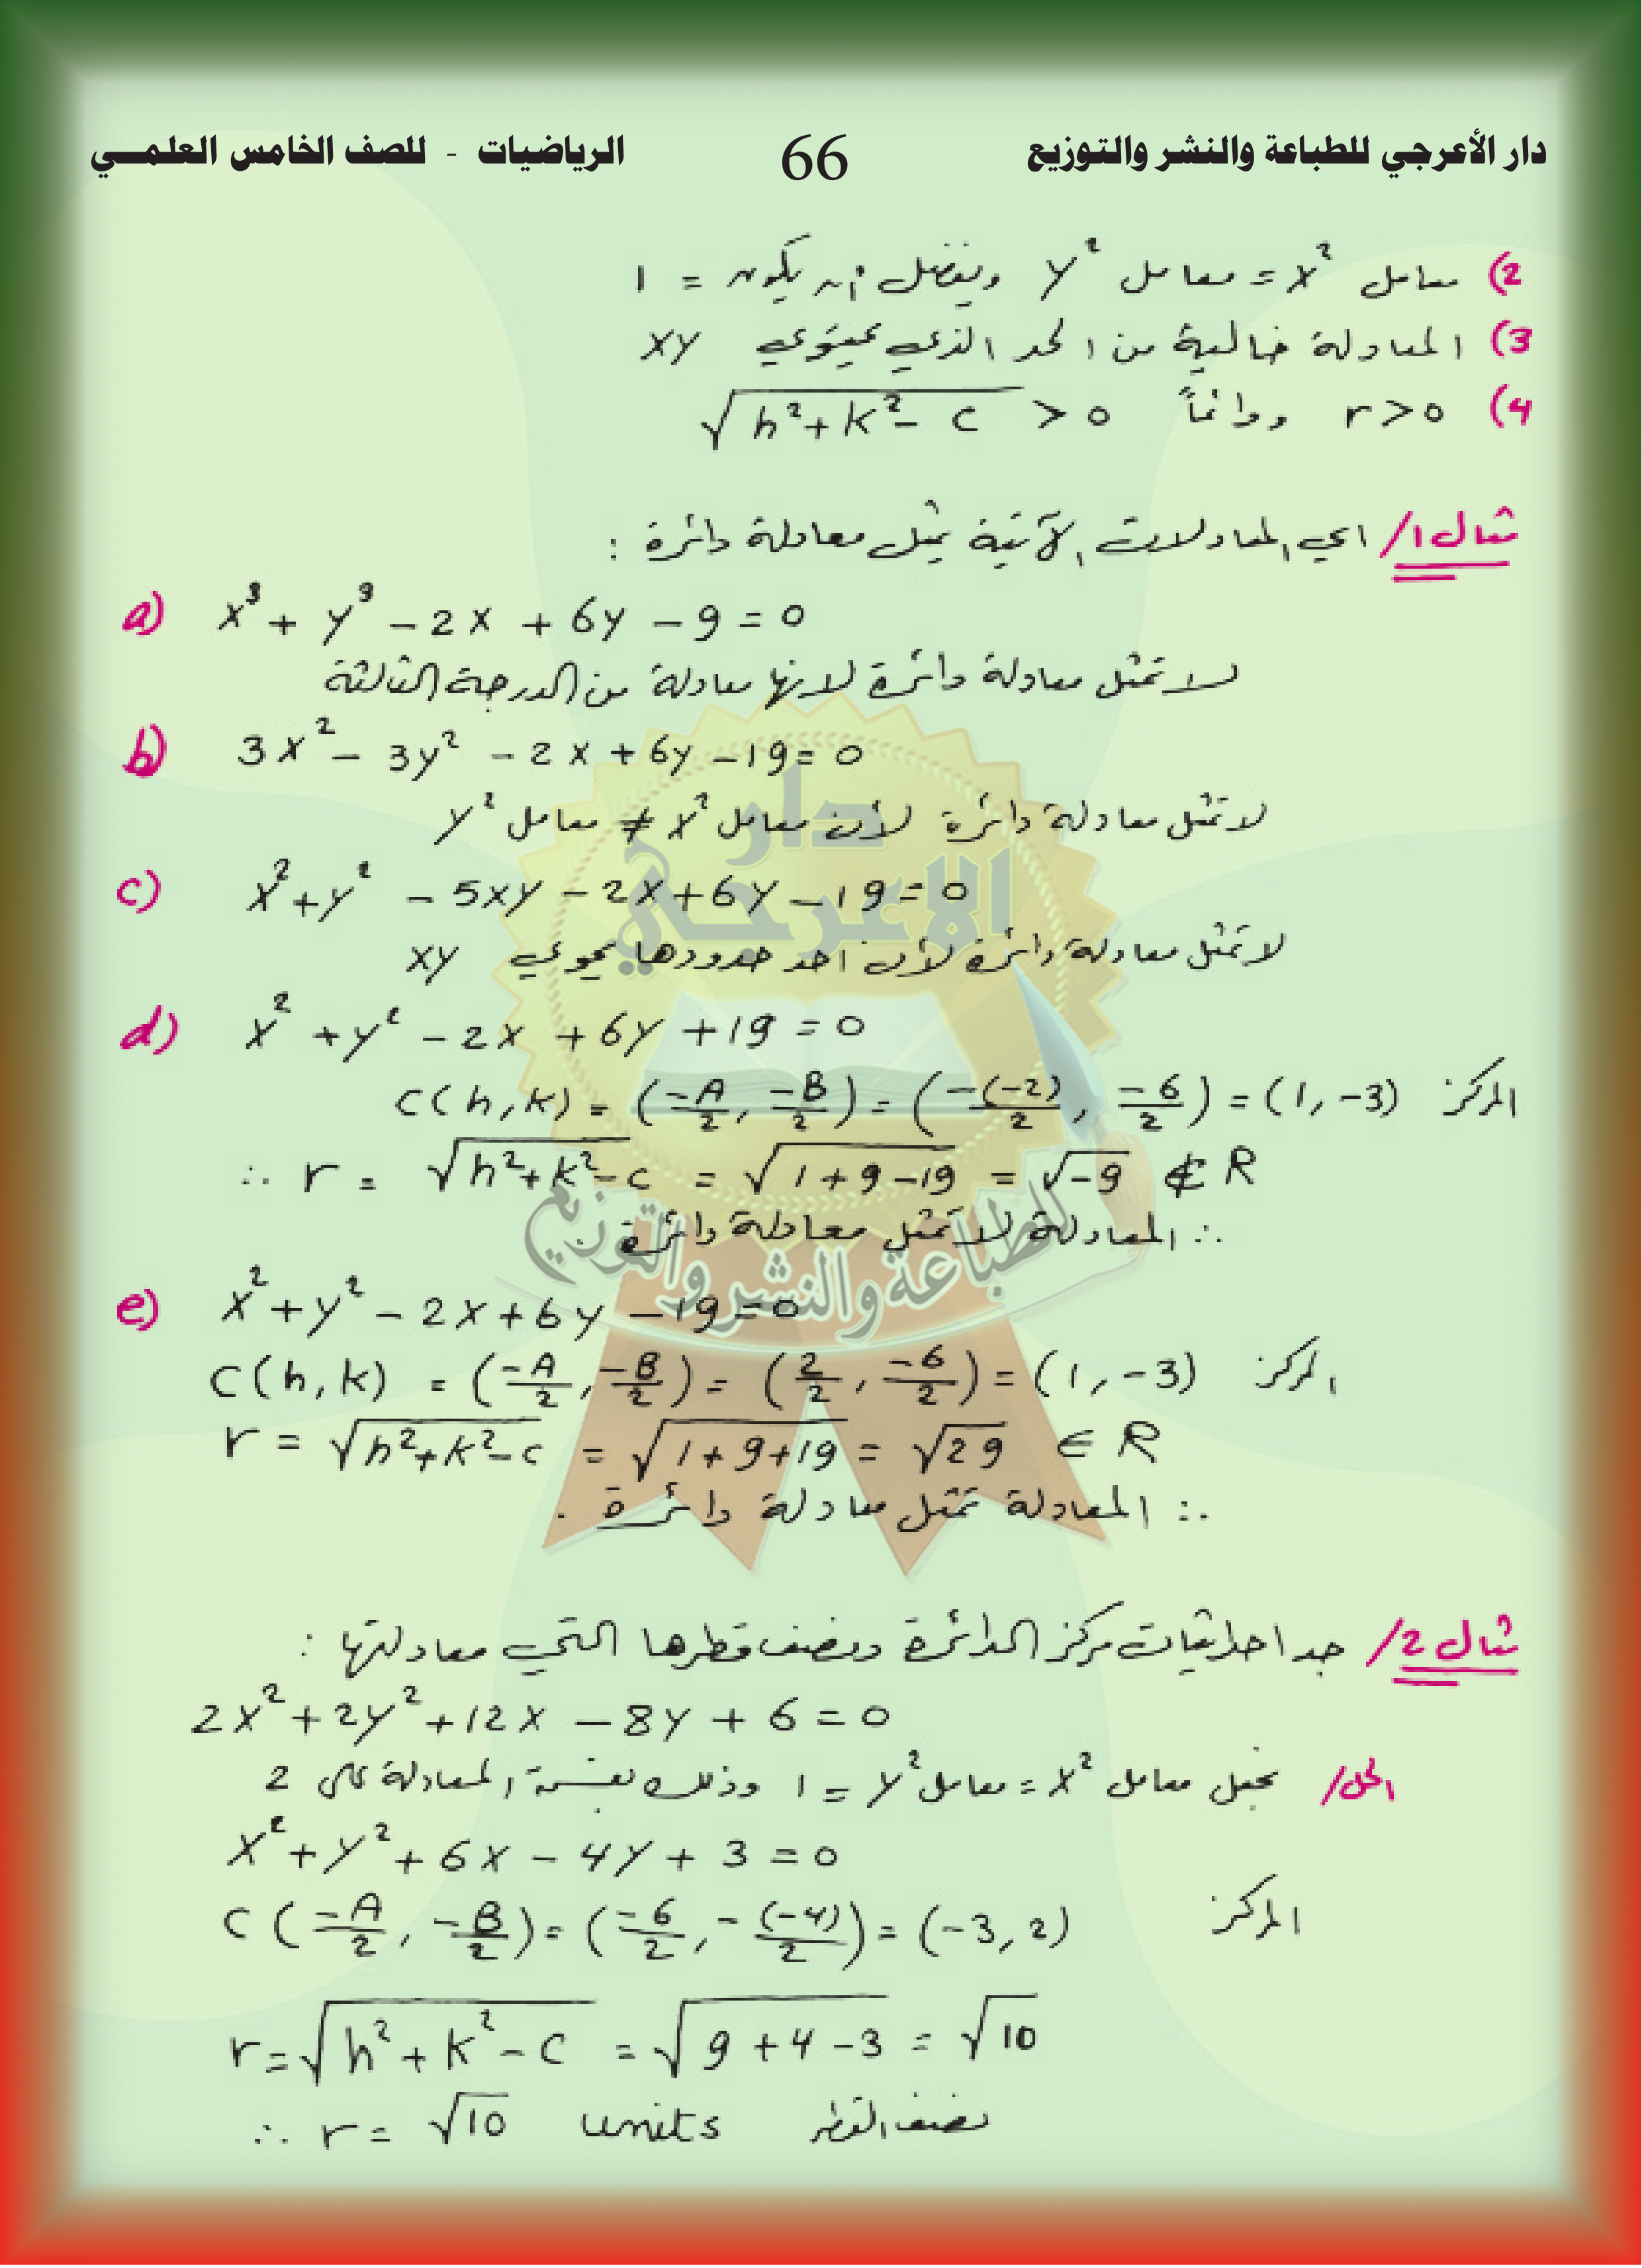 دار الأعرجي للطباعة والنشر والتوزيع 66 الرياضيات - للصف الخامس العلمــي
2) معامل x² = معامل y² ويفضل أن يكون = 1
3) المعادلة خالية من الحد الذي يحتوي xy
4) r > 0 ودائماً √(h²+k²-c) > 0
مثال 1/ اي المعادلات الآتية يمثل معادلة دائرة :
a) x³ + y³ - 2x + 6y - 9 = 0
لا تمثل معادلة دائرة لانها معادلة من الدرجة الثالثة
b) 3x² - 3y² - 2x + 6y - 19 = 0
لا تمثل معادلة دائرة لأن معامل x² ≠ معامل y²
c) x² + y² - 5xy - 2x + 6y - 19 = 0
لا تمثل معادلة دائرة لأن احد حدودها يحوي xy
d) x² + y² - 2x + 6y + 19 = 0
المركز C(h,k) = (-A/2, -B/2) = (-(-2)/2, -6/2) = (1, -3)
∴ r = √(h²+k²-c) = √(1+9-19) = √-9 ∉ R
∴ المعادلة لا تمثل معادلة دائرة .
e) x² + y² - 2x + 6y - 19 = 0
المركز C(h,k) = (-A/2, -B/2) = (2/2, -6/2) = (1, -3)
r = √(h²+k²-c) = √(1+9+19) = √29 ∈ R
∴ المعادلة تمثل معادلة دائرة .
مثال 2/ جد احداثيات مركز الدائرة ونصف قطرها التي معادلتها :
2x² + 2y² + 12x - 8y + 6 = 0
الحل/ نجعل معامل x² = معامل y² = 1 وذلك بقسمة المعادلة على 2
x² + y² + 6x - 4y + 3 = 0
المركز C(-A/2, -B/2) = (-6/2, -(-4)/2) = (-3, 2)
r = √(h²+k²-c) = √(9+4-3) = √10
∴ r = √10 units نصف القطر
دار
الاعرجي
للطباعة والنشر والتوزيع